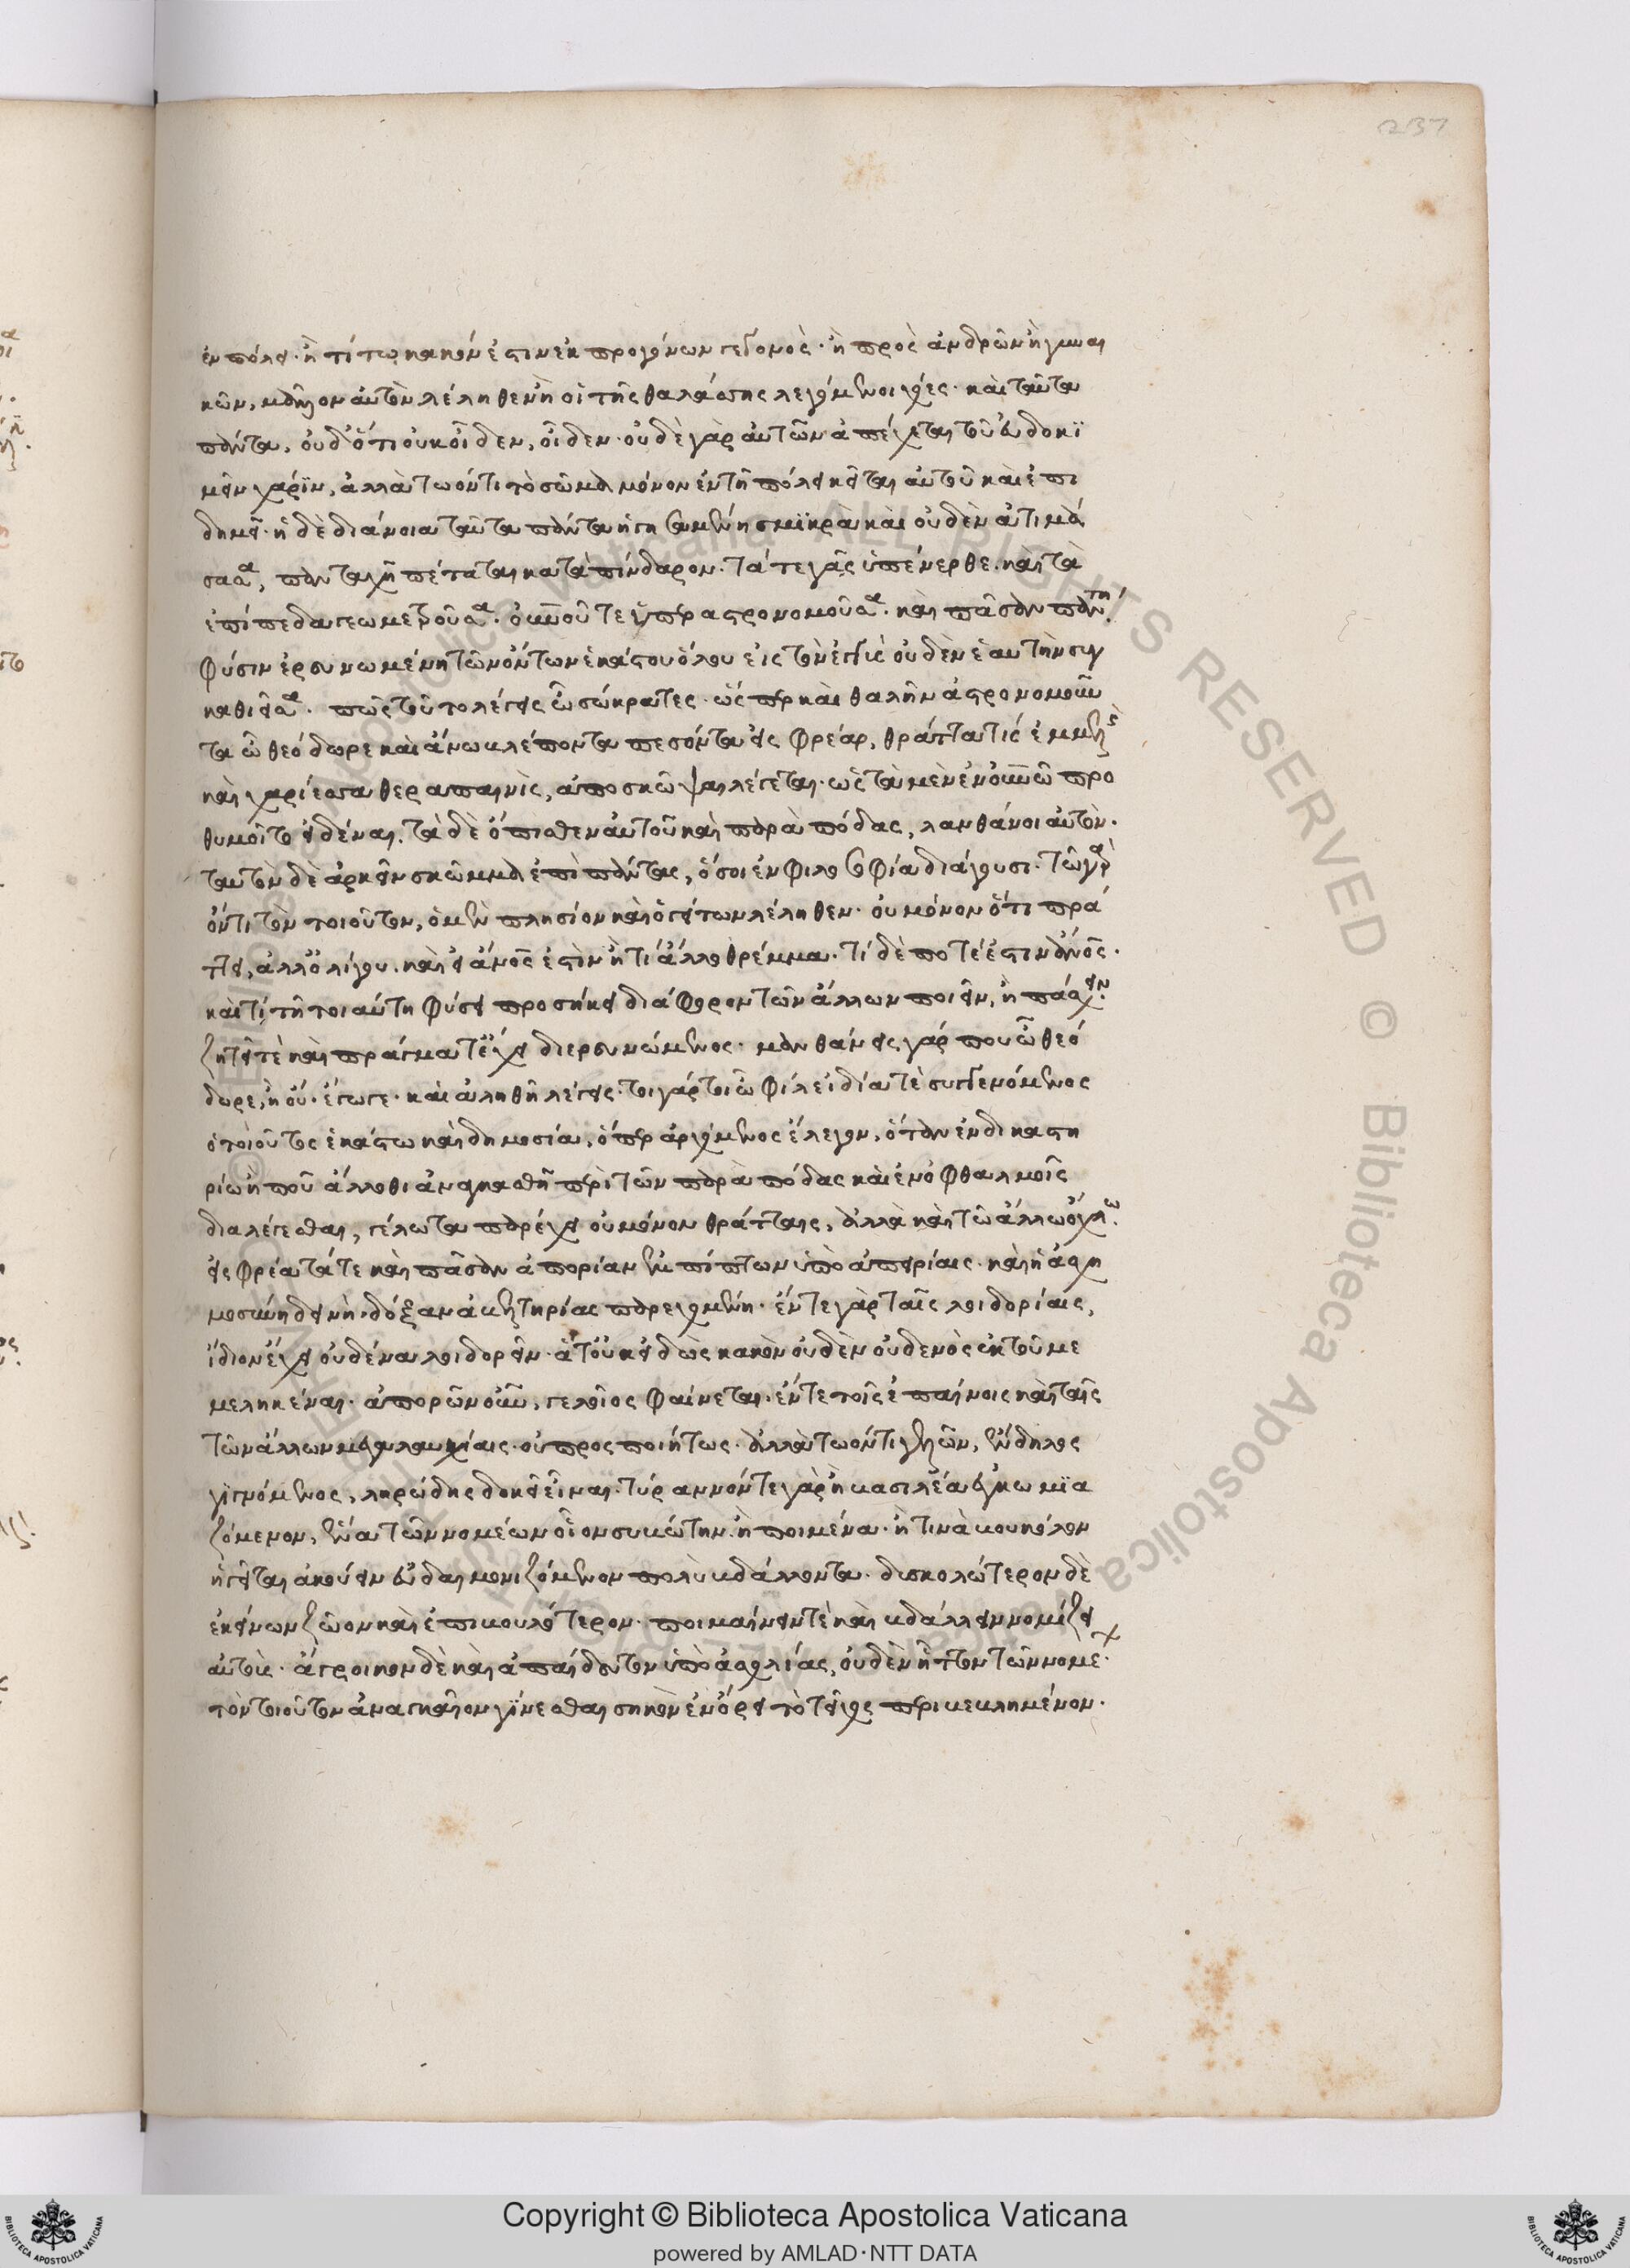 237
ἐν πόλει· ἢ τί τῳ κακόν ἐστιν ἐκ προγόνων γεγονὸς· ἢ πρὸς ἀνδρῶν ἢ γυναι
κῶν, μᾶλλον αὐτὸν λέληθεν ἢ οἱ τῆς θαλάσσης λεγόμενοι χόες· καὶ ταῦτα
πάντα, οὐδ' ὅτι οὐκ οἶδεν, οἶδεν· οὐδὲ γὰρ αὐτῶν ἀπέχεται τοῦ εὐδοκϊ
μεῖν χάρϊν, ἀλλὰ τῶ ὄντι τὸ σῶμα μόνον ἐν τῆ πόλει κεῖται αὐτοῦ καὶ ἐπι
δημεῖ· ἡ δὲ διάνοια ταῦτα πάντα ἡγησαμένη σμϊκρὰ καὶ οὐδὲν ἀτιμά
σασα, πανταχῆ πέταται κατὰ πίνδαρον. τά τε γᾶς ὑπένερθε. καὶ τὰ
ἐπίπεδα γεωμετροῦσα. οὐρανοῦ τε ὕπερ ἀστρονομοῦσα. καὶ πᾶσαν πάντη
φύσιν ἐρευνωμένη τῶν ὄντων ἑκάστου ὅλου εἰς τῶν ἐγγὺς οὐδὲν ἑαυτὴν συγ
καθιεῖσα. πῶς τοῦτο λέγεις ὦ σώκρατες· ὥσπερ καὶ θαλῆν ἀστρονομοῦν
τα ὦ θεόδωρε καὶ ἄνω βλέποντα πεσόντα εἰς φρέαρ, θρᾶττά τις ἐμμελὴς
καὶ χαρίεσσα θεραπαινὶς, ἀποσκῶψαι λέγεται· ὡς τὰ μὲν ἐν οὐρανῶ προ
θυμοῖτο εἰδέναι. τὰ δὲ ὄπισθεν αὐτοῦ καὶ παρὰ πόδας, λανθάνοι αὐτὸν·
ταυτὸν δὲ ἀρκεῖν σκῶμμα ἐπὶ πάντας, ὅσοι ἐν φιλοσοφία διάγουσι. τῶ γὰρ
ὄντι τὸν τοιοῦτον, ὁ μὲν πλησίον καὶ ὁ γείτων λέληθεν· οὐ μόνον ὅτι πρά
ττει, ἀλλ' ὀλίγου. καὶ εἰ ἄνθρωπός ἐστιν ἤ τι ἄλλο θρέμμα. τί δὲ ποτέ ἐστιν ἄνθρωπος.
καὶ τί τῆ τοιαύτη φύσει προσήκει διάφορον τῶν ἄλλων ποιεῖν, ἢ πάσχειν.
ζητεῖ τὲ καὶ πράγματ' ἔχει διερευνώμενος· μανθάνεις γάρ που ὦ θεό
δωρε, ἢ οὔ· ἔγωγε· καὶ ἀληθῆ λέγεις· τοιγάρτοι ὦ φίλε ἰδία τὲ συγγενόμενος
ὁ τοιοῦτος ἑκάστω καὶ δημοσία, ὅπερ ἀρχόμενος ἔλεγον, ὅταν ἐν δικαστη
ρίω ἤ που ἄλλοθι ἀναγκασθῆ περὶ τῶν παρὰ πόδας καὶ ἐν ὀφθαλμοῖς
διαλέγεσθαι, γέλωτα παρέχει οὐ μόνον θράτταις, ἀλλὰ καὶ τῶ ἄλλω ὄχλω.
εἰς φρέατά τε καὶ πᾶσαν ἀπορίαν ἐμπίπτων ὑπὸ ἀπειρίας· καὶ ἡ ἀσχη
μοσύνη δεινὴ· δόξαν ἀβελτηρίας παρεχομένη· ἔν τε γὰρ ταῖς λοιδορίαις,
ἴδιον ἔχει οὐδένα λοιδορεῖν· ἅτ' οὐκ εἰδὼς κακὸν οὐδὲν οὐδενὸς ἐκ τοῦ με
μεληκέναι· ἀπορῶν οὖν, γελοῖος φαίνεται· ἔν τε τοῖς ἐπαίνοις καὶ ταῖς
τῶν ἄλλων μεγαλαυχίαις· οὐ προσποιήτως· ἀλλὰ τῶ ὄντι γελῶν, ἔνδηλος
γιγνόμενος, ληρώδης δοκεῖ εἶναι· τύραννόν τε γὰρ ἢ βασιλέα ἐγκωμϊα
ζόμενον, ἕνα τῶν νομέων οἷον συβώτην ἢ ποιμένα· ἤ τινα βουκόλον
ἡγεῖται ἀκούειν εὐδαιμονιζόμενον πολὺ βδάλλοντα· δυσκολώτερον δὲ
ἐκείνων ζῶον καὶ ἐπιβουλότερον· ποιμαίνειν τὲ καὶ βδάλλειν νομίζει
αὐτοὺς· ἄγροικον δὲ καὶ ἀπαίδευτον ὑπὸ ἀσχολίας, οὐδὲν ἧττον τῶν νομέ·
τὸν τοιοῦτον ἀναγκαῖον γίνεσθαι σηκὸν ἐν ὄρει τὸ τεῖχος περιβεβλημένον·
Copyright © Biblioteca Apostolica Vaticana
powered by AMLAD·NTT DATA